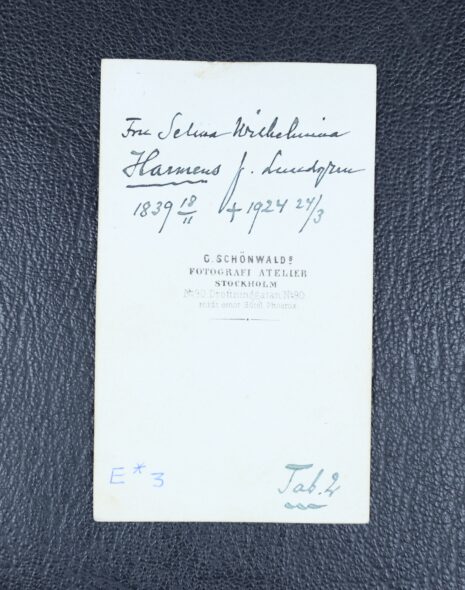 Fru Selma Wilhelmina
Harmens f. Lundgren
1839 18/11 + 1924 24/3
G. SCHÖNWALDS
FOTOGRAFI ATELIER
STOCKHOLM
No 90 Drottninggatan No 90
midt emot Hôtel Phoenix
E * 3
Tab. 2